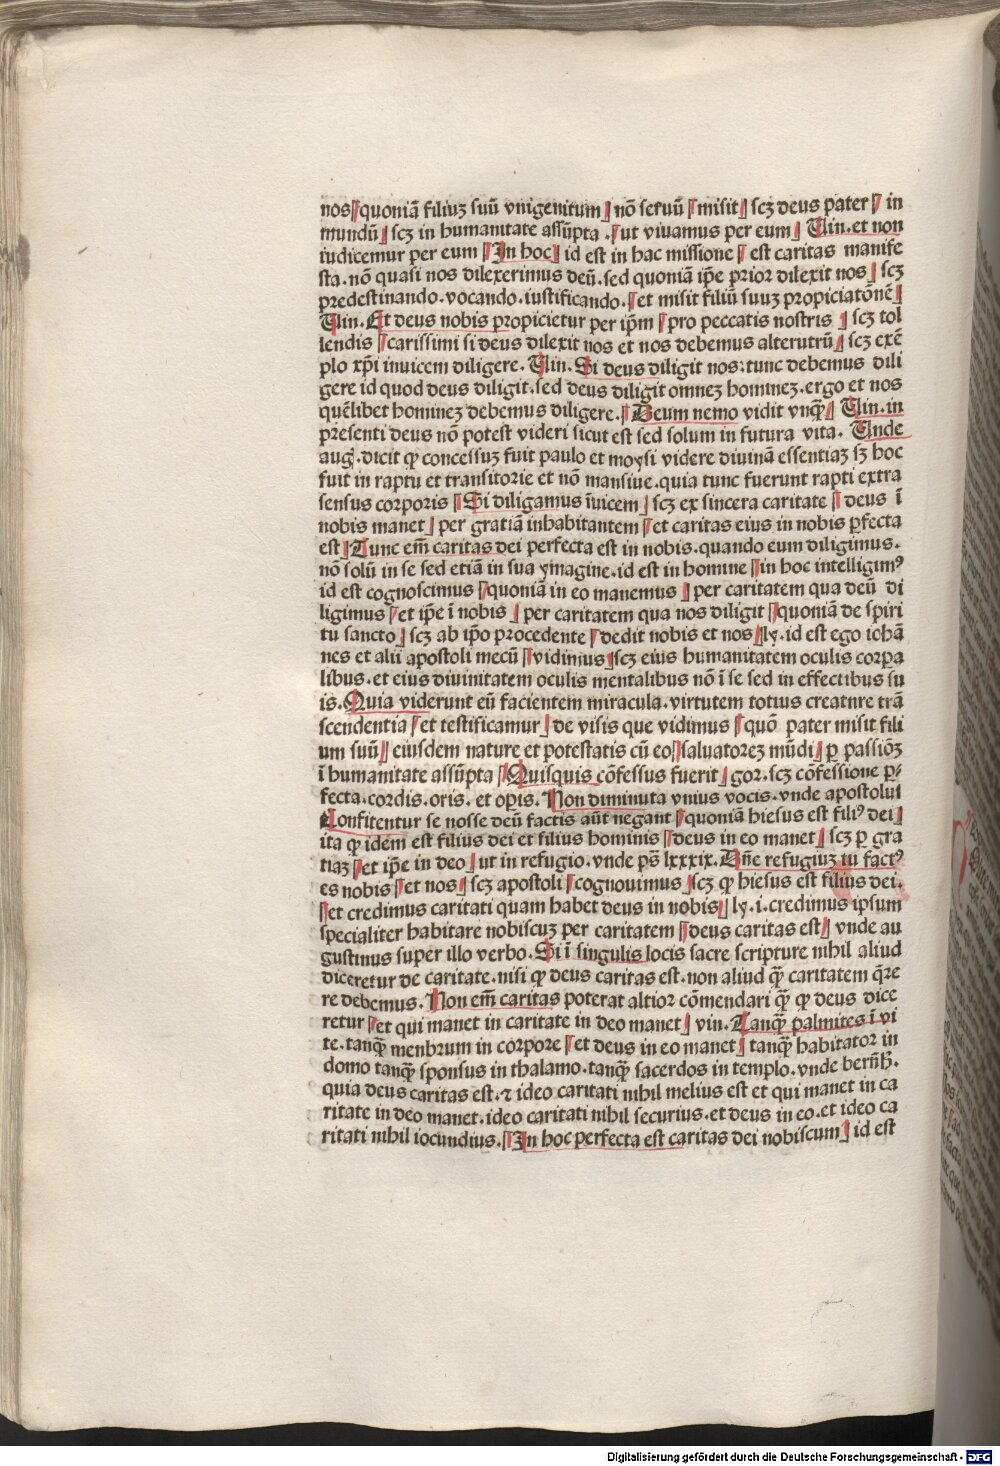 nos quoniã filiuȝ suũ vnigenitum nõ seruũ misit scȝ deus pater in
mundũ scȝ in humanitate assũpta . ut viuamus per eum Uin. et non
iudicemur per eum In hoc id est in hac missione est caritas manife
sta. nõ quasi nos dilexerimus deũ. sed quoniã ip̃e prior dilexit nos scȝ
predestinando. vocando. iustificando. et misit filiũ suuȝ propiciatõnẽ
Uin. Et deus nobis propicietur per ip̃m pro peccatis nostris scȝ tol
lendis carissimi si deus dilexit nos et nos debemus alterutrũ scȝ exẽ
plo xp̃i inuicem diligere. Uin. Si deus diligit nos: tunc debemus dili
gere id quod deus diligit. sed deus diligit omneȝ homineȝ. ergo et nos
quẽlibet homineȝ debemus diligere. Deum nemo vidit vnq̃ȝ Uin. in
presenti deus nõ potest videri sicut est sed solum in futura vita. Unde
aug. dicit ꝙ concessuȝ fuit paulo et moysi videre diuinã essentiaȝ sȝ hoc
fuit in raptu et transitorie et nõ mansiue. quia tunc fuerunt rapti extra
sensus corporis Si diligamus ĩuicem scȝ ex sincera caritate deus ĩ
nobis manet per gratiã inhabitantem et caritas eius in nobis ꝑfecta
est Tunc em̃ caritas dei perfecta est in nobis. quando eum diligimus.
nõ solũ in se sed etiã in sua ymagine. id est in homine in hoc intelligimꝰ
id est cognoscimus quoniã in eo manemus per caritatem qua deũ di
ligimus et ip̃e ĩ nobis per caritatem qua nos diligit quoniã de spiri
tu sancto scȝ ab ip̃o procedente dedit nobis et nos ly. id est ego iohã
nes et alii apostoli mecũ vidimus scȝ eius humanitatem oculis corpa
libus. et eius diuinitatem oculis mentalibus nõ ĩ se sed in effectibus su
is. Quia viderunt eũ facientem miracula. virtutem totius creature trã
scendentia et testificamur de visis que vidimus quõ pater misit fili
um suũ eiusdem nature et potestatis cũ eo saluatoreȝ mũdi ꝑ passiõȝ
ĩ humanitate assũpta Quisquis cõfessus fuerit gor. scȝ cõfessione ꝑ⸗
fecta. cordis. oris. et oꝑis. Non diminuta vnius vocis. vnde apostolus
Confitentur se nosse deũ factis aũt negant quoniã hiesus est filiꝰ dei
ita ꝙ idem est filius dei et filius hominis deus in eo manet scȝ ꝑ gra
tiaȝ et ip̃e in deo ut in refugio. vnde ps̃ lxxxix. Dñe refugiuȝ tu factꝰ
es nobis et nos scȝ apostoli cognouimus scȝ ꝙ hiesus est filius dei.
et credimus caritati quam habet deus in nobis ly. i. credimus ipsum
specialiter habitare nobiscuȝ per caritatem deus caritas est vnde au
gustinus super illo verbo. Si ĩ singulis locis sacre scripture nihil aliud
diceretur de caritate. nisi ꝙ deus caritas est. non aliud q̃ȝ caritatem q̃re
re debemus. Non em̃ caritas poterat altior cõmendari q̃ȝ ꝙ deus dice
retur et qui manet in caritate in deo manet vin. Tanq̃ȝ palmites ĩ vi
te. tanq̃ȝ menbrum in corpore et deus in eo manet tanq̃ȝ habitator in
domo tanq̃ȝ sponsus in thalamo. tanq̃ȝ sacerdos in templo. vnde berñh.
quia deus caritas est. ⁊ ideo caritati nihil melius est et qui manet in ca
ritate in deo manet. ideo caritati nihil securius. et deus in eo. et ideo ca
ritati nihil iocundius. In hoc perfecta est caritas dei nobiscum id est
Digitalisierung gefördert durch die Deutsche Forschungsgemeinschaft - DFG